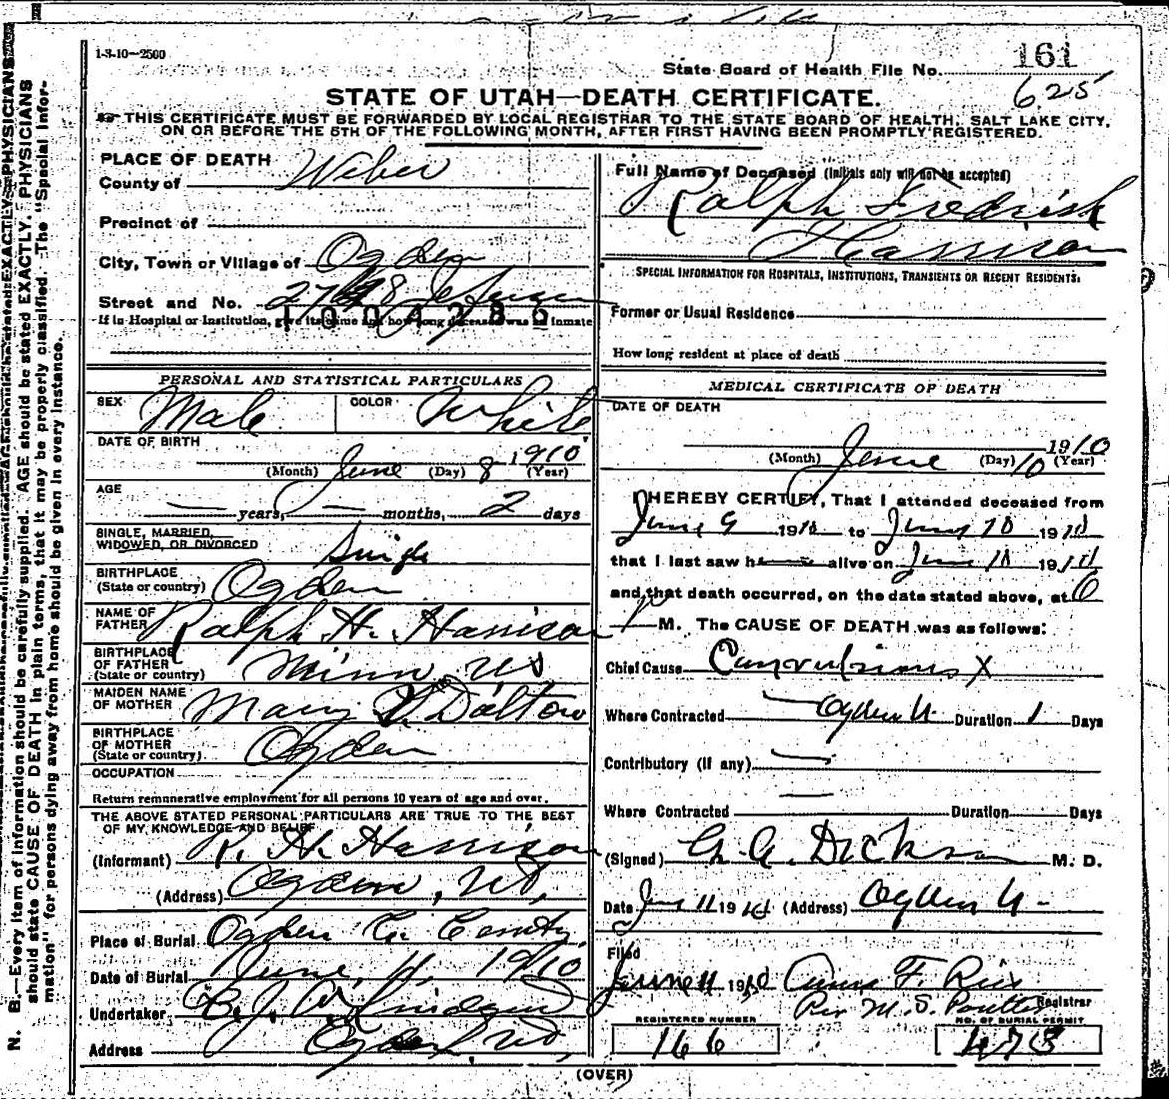 1-3-10—2500
161
State Board of Health File No.
625
STATE OF UTAH—DEATH CERTIFICATE.
THIS CERTIFICATE MUST BE FORWARDED BY LOCAL REGISTRAR TO THE STATE BOARD OF HEALTH, SALT LAKE CITY,
ON OR BEFORE THE 5TH OF THE FOLLOWING MONTH, AFTER FIRST HAVING BEEN PROMPTLY REGISTERED.
PLACE OF DEATH
County of Weber
Precinct of
City, Town or Village of Ogden
Street and No.
If in Hospital or Institution, give its name and how long deceased was an inmate
1004286
PERSONAL AND STATISTICAL PARTICULARS
SEX Male COLOR White
DATE OF BIRTH
(Month) June (Day) 8 1910 (Year)
AGE
— years, — months, 2 days
SINGLE, MARRIED,
WIDOWED, OR DIVORCED Single
BIRTHPLACE
(State or country) Ogden
NAME OF
FATHER Ralph H. Harrison
BIRTHPLACE
OF FATHER
(State or country) Minn, US
MAIDEN NAME
OF MOTHER Mary Dalton
BIRTHPLACE
OF MOTHER
(State or country) Ogden
OCCUPATION
Return remunerative employment for all persons 10 years of age and over.
THE ABOVE STATED PERSONAL PARTICULARS ARE TRUE TO THE BEST
OF MY KNOWLEDGE AND BELIEF
(Informant) R. H. Harrison
(Address) Ogden, Ut,
Place of Burial Ogden
Date of Burial June, 11, 1910
Undertaker
Address Ogden, Ut,
Full Name of Deceased (Initials only will not be accepted)
Ralph Fredrick
Harrison
SPECIAL INFORMATION FOR HOSPITALS, INSTITUTIONS, TRANSIENTS OR RECENT RESIDENTS:
Former or Usual Residence
How long resident at place of death
MEDICAL CERTIFICATE OF DEATH
DATE OF DEATH
1910
(Month) June (Day) 10 (Year)
I HEREBY CERTIFY, That I attended deceased from
June 9 1910 to June 10 1910
that I last saw h— alive on June 10 1910
and that death occurred, on the date stated above, at 6
P M. The CAUSE OF DEATH was as follows:
Chief Cause Convulsions X
Where Contracted Ogden U Duration 1 Days
Contributory (if any) —
—
Where Contracted Duration Days
(Signed) Dickson M. D.
Date June 11 1910 (Address) Ogden U-
Filed
June 11 1910 F. Registrar
Per M. S.
REGISTERED NUMBER
166
NO. OF BURIAL PERMIT
473
(OVER)
N. B.—Every item of information should be carefully supplied. AGE should be stated EXACTLY. PHYSICIANS
should state CAUSE OF DEATH in plain terms, that it may be properly classified. The "Special Infor-
mation" for persons dying away from home should be given in every instance.